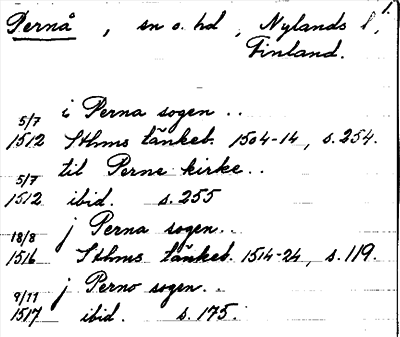 1.
Pernå, sn o. hd, Nylands l,
Finland.
5/7 i Perna sogen ..
1512 Sthms tänkeb. 1504-14, s. 254.
5/7 til Perne kirke ..
1512 ibid. s. 255
18/8 j Perna sogen ..
1516 Sthms tänkeb. 1514-24, s. 119.
9/11 j Perno sogen ..
1517 ibid. s. 175.